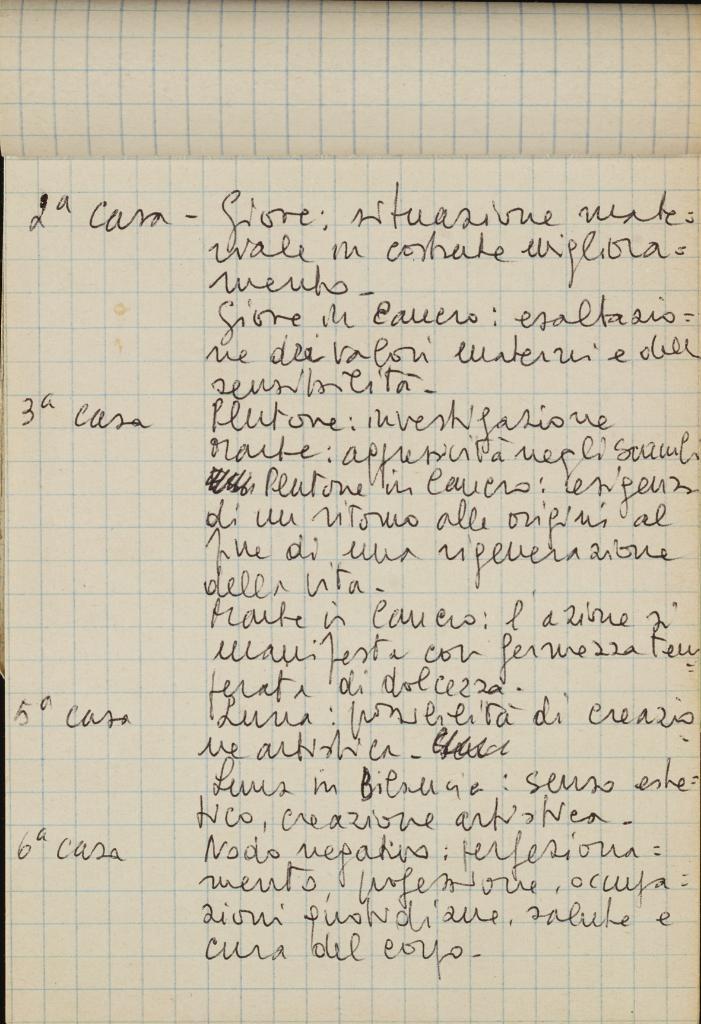 2ª casa - Giove: situazione mate=
riale in costante migliora=
mento -
Giove in Cancro: esaltazio=
ne dei valori materni e della
sensibilità -
3ª casa Plutone: investigazione
Marte: aggressività negli scambi
Plutone in Cancro: esigenza
di un ritorno alle origini al
fine di una rigenerazione
della vita -
Marte in Cancro: l'azione si
manifesta con fermezza tem=
perata di dolcezza.
5ª casa Luna: possibilità di creazio=
ne artistica -
Luna in Bilancia: senso este=
tico, creazione artistica -
6ª casa Nodo negativo: perfeziona=
mento, professione, occupa=
zioni quotidiane, salute e
cura del corpo -